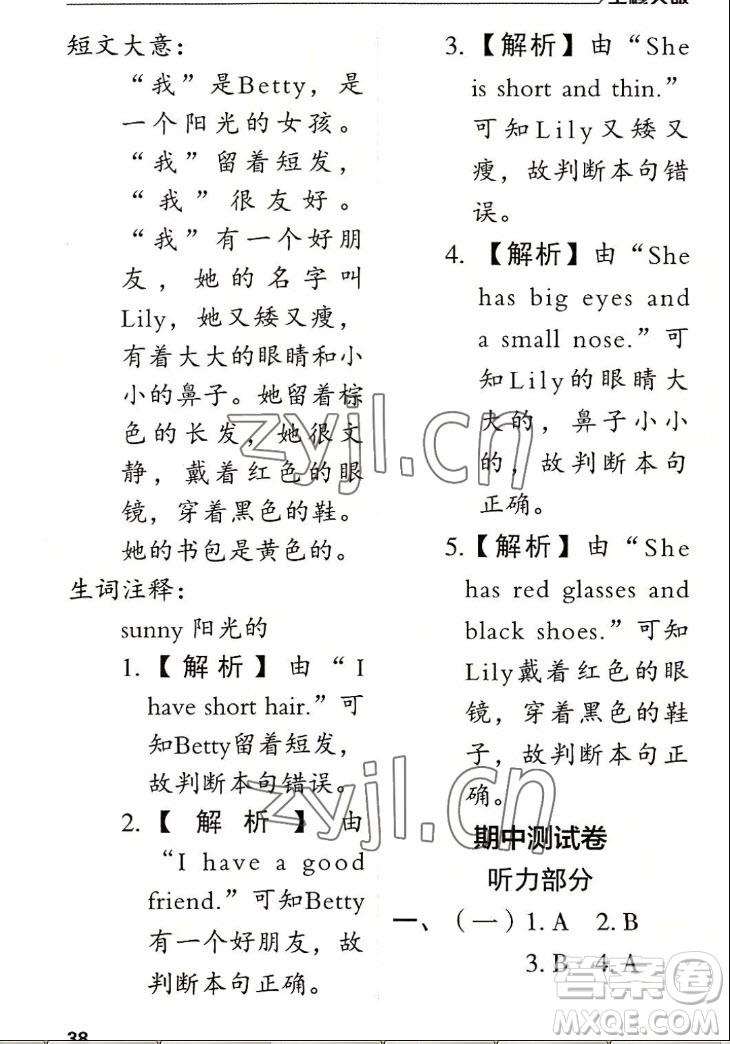 短文大意：
“我”是Betty，是
一个阳光的女孩。
“我”留着短发，
“我”很友好。
“我”有一个好朋
友，她的名字叫
Lily，她又矮又瘦，
有着大大的眼睛和小
小的鼻子。她留着棕
色的长发，她很文
静，戴着红色的眼
镜，穿着黑色的鞋。
她的书包是黄色的。
生词注释：
sunny 阳光的
1.【解析】由“I
have short hair.”可
知Betty留着短发，
故判断本句错误。
2.【解析】由
“I have a good
friend.”可知Betty
有一个好朋友，故
判断本句正确。
38
3.【解析】由“She
is short and thin.”
可知Lily又矮又
瘦，故判断本句错
误。
4.【解析】由“She
has big eyes and
a small nose.”可
知Lily的眼睛大
大的，鼻子小小
的，故判断本句
正确。
5.【解析】由“She
has red glasses and
black shoes.”可知
Lily戴着红色的眼
镜，穿着黑色的鞋
子，故判断本句正
确。
期中测试卷
听力部分
一、（一）1. A 2. B
3. B 4. A
zyjl.cn
zyjl.cn
答案圈
MXQE.COM